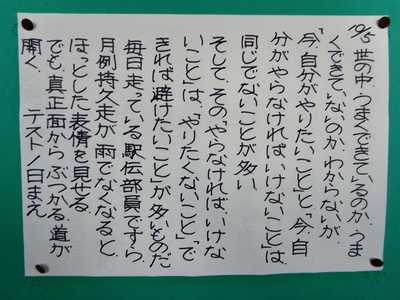 10/5 世の中、うまくできているのか、うま
くできていないのか、わからないが、
「今、自分がやりたいこと」と「今、自
分がやらなければいけないこと」は、
同じでないことが多い
そして、その「やらなければ、いけな
いこと」は、「やりたくないこと」「で
きれば避けたいこと」が多いものだ
毎日走っている駅伝部員ですら、
月例持久走が雨でなくなると、
ほっとした表情を見せる
でも、真正面からぶつかる。道が
開く、 テスト1日まえ